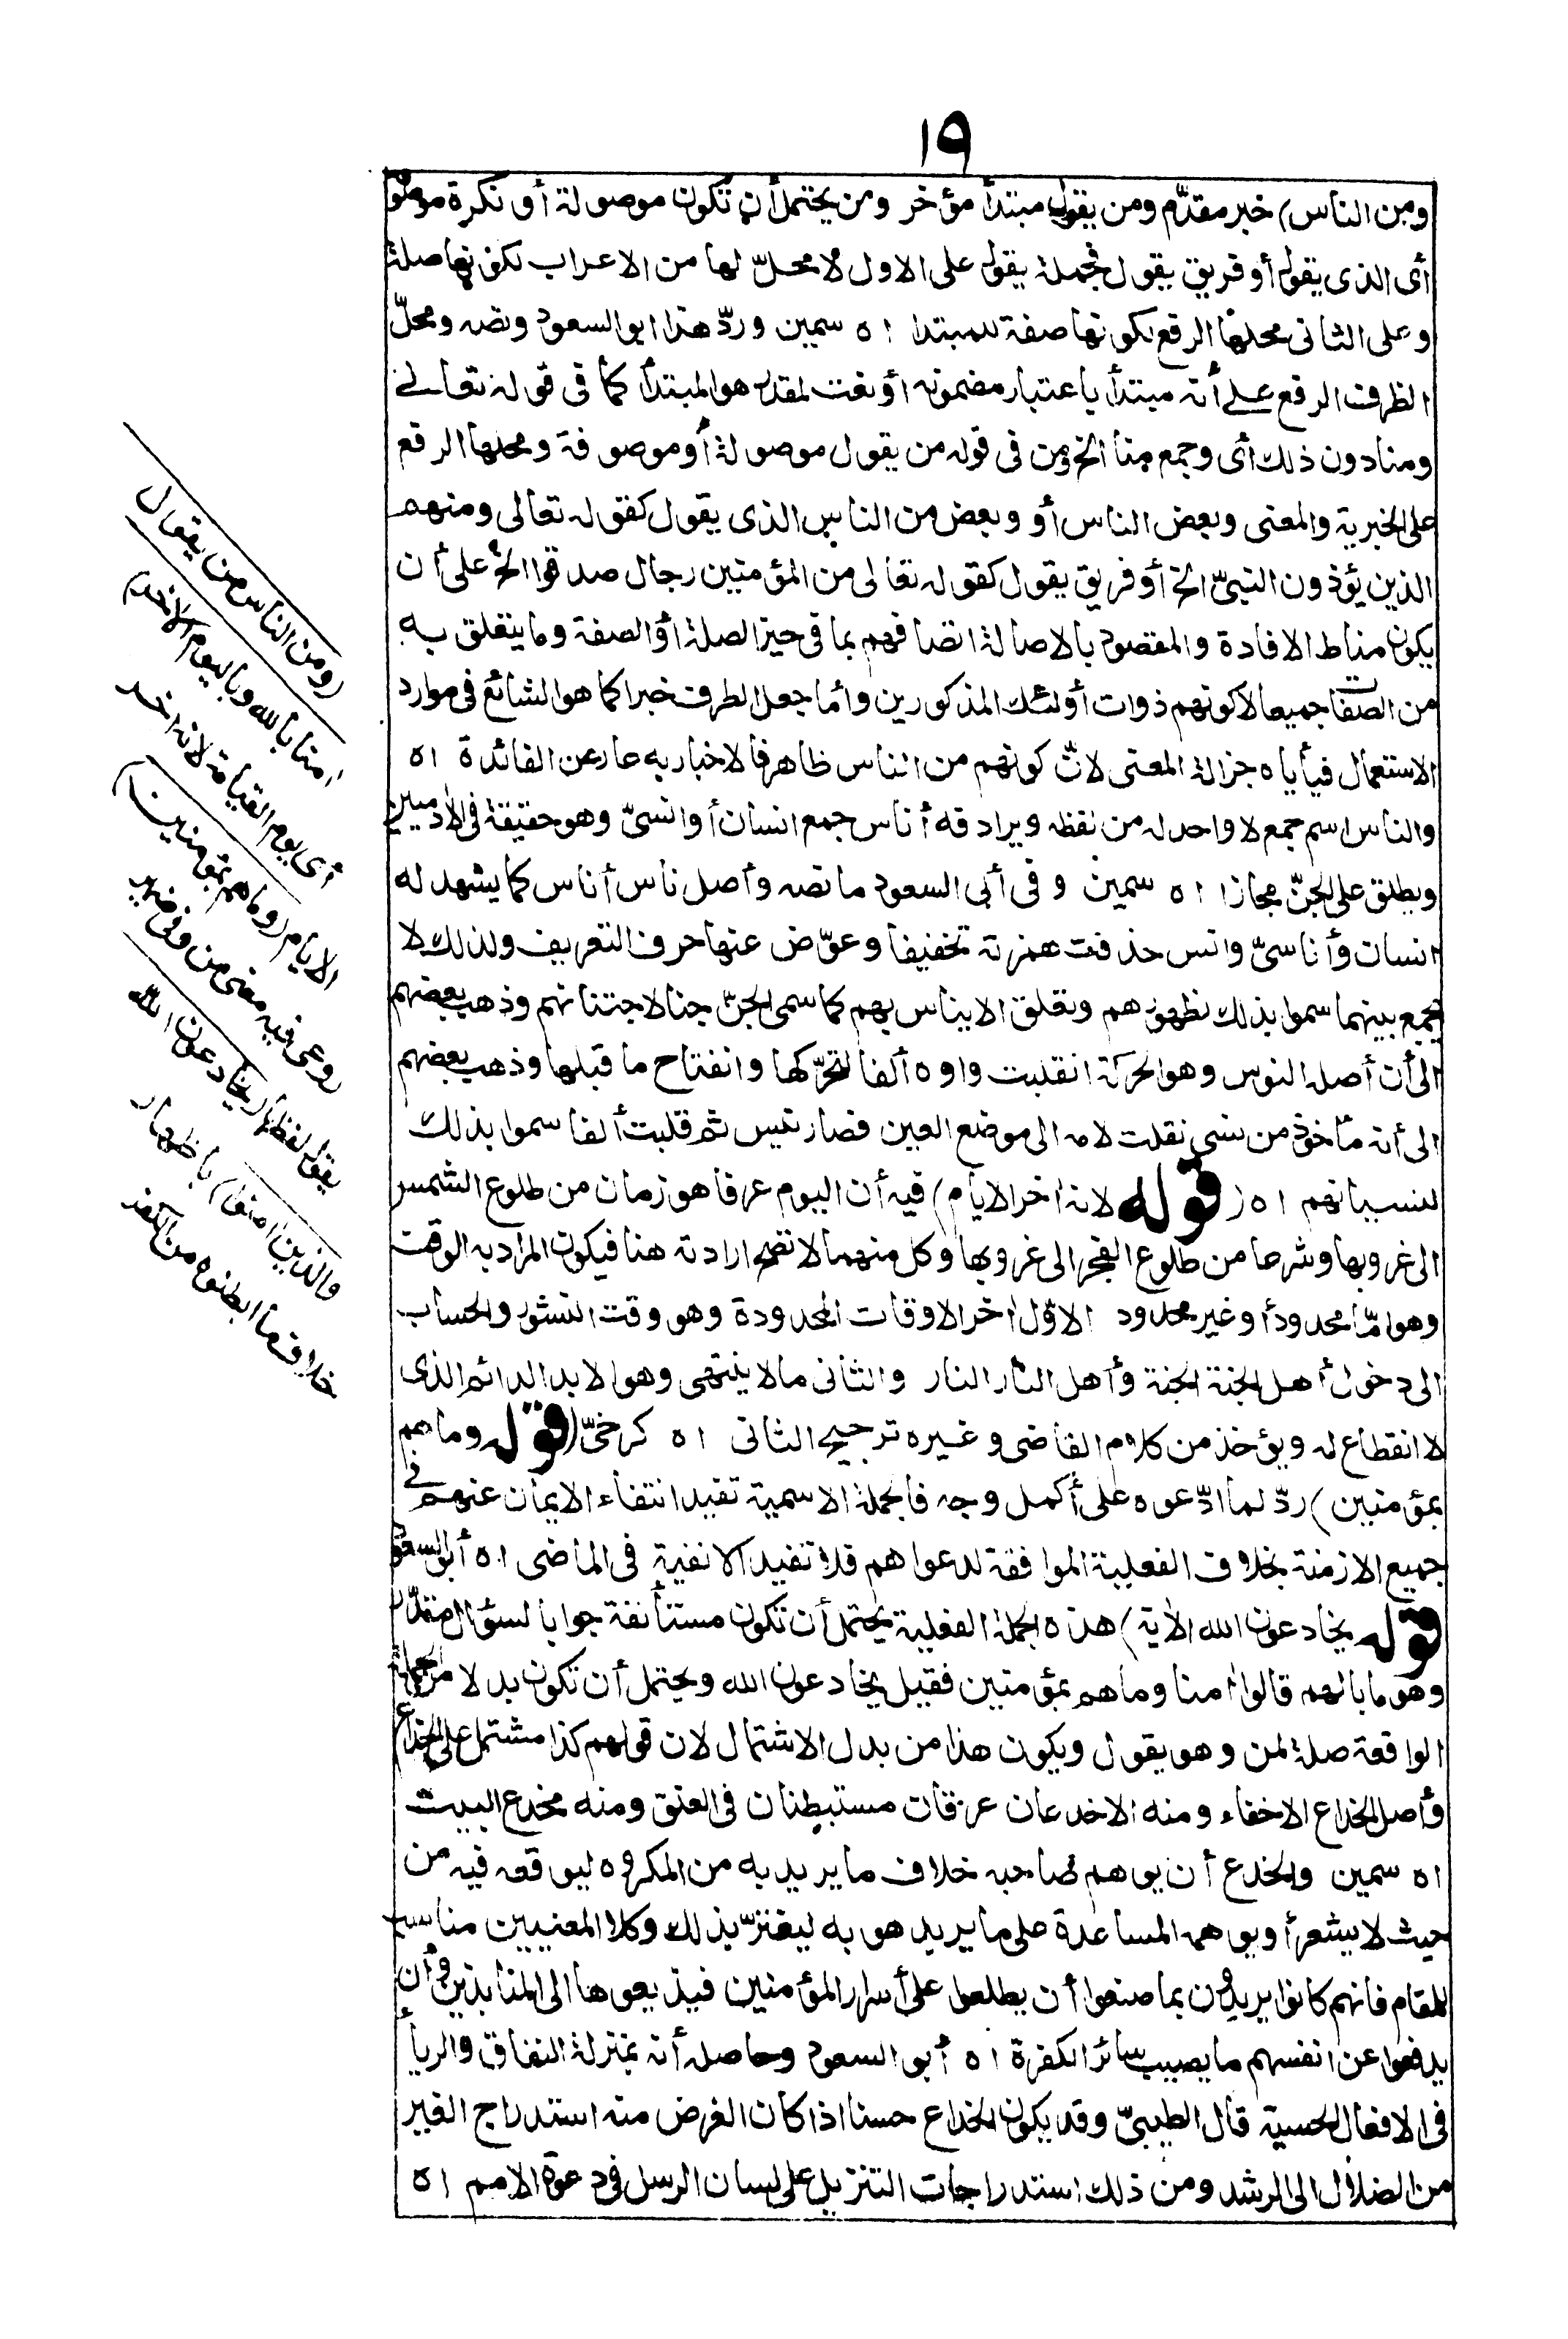 ١٩
ومن الناس) خبر مقدّم ومن يقول مبتدأ مؤخر ومن يحتمل أن تكون موصولة أو نكرة موصوفة
أى الذى يقول أو فريق يقول فجملة يقول على الاول لا محلّ لها من الاعراب لكونها صلة
وعلى الثانى محلها الرفع لكونها صفة للمبتدا ا ه سمين وردّ هذا ابو السعود ونصه ومحلّ
الظرف الرفع على أنه مبتدأ باعتبار مضمونه أو نعت لمقدر هو المبتدأ كما فى قوله تعالى
ومنا دون ذلك أى وجمع منا الخ ومن فى قوله من يقول موصولة أو موصوفة ومحلها الرفع
على الخبرية والمعنى وبعض الناس أو وبعض من الناس الذى يقول كقوله تعالى ومنهم
الذين يؤذون النبىّ الخ أو فريق يقول كقوله تعالى من المؤمنين رجال صدقوا الخ على أن
يكون مناط الافادة والمقصود بالاصالة اتصافهم بما فى حيز الصلة أو الصفة وما يتعلق به
من الصفات جميعا لا كونهم ذوات أولئك المذكورين وأما جعل الظرف خبرا كما هو الشائع فى موارد
الاستعمال فيأباه جزالة المعنى لانّ كونهم من الناس ظاهر فالاخبار به عار عن الفائدة ا ه
والناس اسم جمع لا واحد له من لفظه ويرادفه أناس جمع انسان أو انسىّ وهو حقيقة فى الآدميين
ويطلق على الجنّ مجازا ا ه سمين وفى أبى السعود ما نصه وأصل ناس أناس كما يشهد له
انسان وأناسىّ وانس حذفت همزته تخفيفا وعوّض عنها حرف التعريف ولذلك لا
يجمع بينهما سموا بذلك لظهورهم وتعلق الايناس بهم كما سمى الجنّ جنا لاجتنانهم وذهب بعضهم
الى أن أصله النوس وهو الحركة انقلبت واوه ألفا لتحرّكها وانفتاح ما قبلها وذهب بعضهم
الى أنه مأخوذ من نسى نقلت لامه الى موضع العين فصار نيس ثم قلبت ألفا سموا بذلك
لنسيانهم ا ه (قوله لانه آخر الايام) فيه أن اليوم عرفا هو زمان من طلوع الشمس
الى غروبها وشرعا من طلوع الفجر الى غروبها وكل منهما لا تصح ارادته هنا فيكون المراد به الوقت
وهو امّا محدود أو غير محدود الاوّل آخر الاوقات المحدودة وهو وقت النشور والحساب
الى دخول أهل الجنة الجنة وأهل النار النار والثانى ما لا ينتهى وهو الابد الدائم الذى
لا انقطاع له ويؤخذ من كلام القاضى وغيره ترجيح الثانى ا ه كرخىّ (قوله وما هم
بمؤمنين) ردّ لما ادّعوه على أكمل وجه فالجملة الاسمية تفيد انتفاء الايمان عنهم فى
جميع الازمنة بخلاف الفعلية الموافقة لدعواهم فلا تفيد الا نفيه فى الماضى ا ه أبو السعود
قوله يخادعون الله الآية) هذه الجملة الفعلية يحتمل أن تكون مستأنفة جوابا لسؤال مقدّر
وهو ما بالهم قالوا آمنا وما هم بمؤمنين فقيل يخادعون الله ويحتمل أن تكون بدلا من الجملة
الواقعة صلة لمن وهو يقول ويكون هذا من بدل الاشتمال لان قولهم كذا مشتمل على الخداع
وأصل الخداع الاخفاء ومنه الاخدعان عرقان مستبطنان فى العنق ومنه مخدع البيت
ا ه سمين والخدع أن يوهم صاحبه خلاف ما يريد به من المكروه ليوقعه فيه من
حيث لا يشعر أو يوهمه المساعدة على ما يريد هو به ليغترّ بذلك وكلا المعنيين مناسب
للمقام فانهم كانوا يريدون بما صنعوا أن يطلعوا على أسرار المؤمنين فيذيعوها الى المنابذين وأن
يدفعوا عن انفسهم ما يصيب سائر الكفرة ا ه أبو السعود وحاصله أنه بمنزلة النفاق والريأ
فى الافعال الحسية قال الطيبىّ وقد يكون الخداع حسنا اذا كان الغرض منه استدراج الغير
من الضلال الى الرشد ومن ذلك استدراجات التنزيل على لسان الرسل فى دعوة الامم ا ه
(ومن الناس من يقول
آمنا بالله وباليوم الآخر)
أى يوم القيامة لانه آخر
الايام (وما هم بمؤمنين)
روعى فيه معنى من وفى ضمير
يقول لفظها (يخادعون الله
والذين آمنوا) باظهار
خلاف ما ابطنوه من الكفر